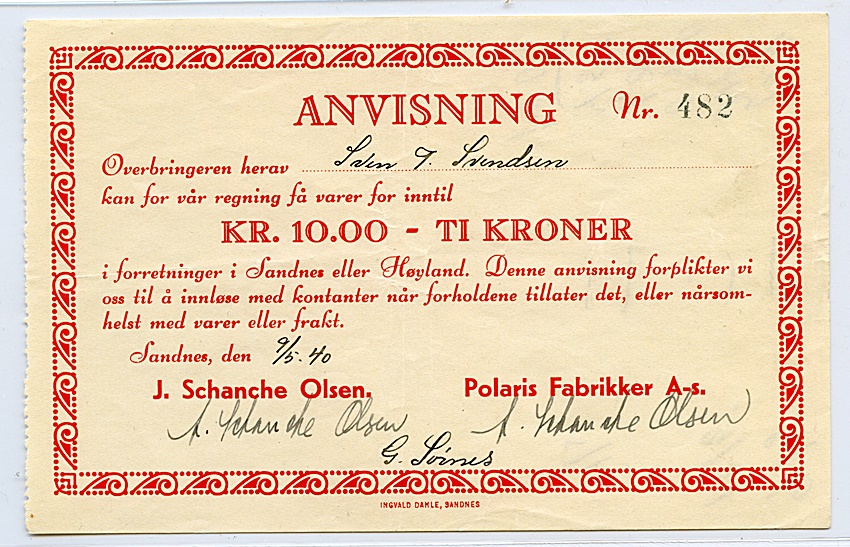 ANVISNING Nr. 482
Overbringeren herav Sven T. Svendsen
kan for vår regning få varer for inntil
KR. 10.00 - TI KRONER
i forretninger i Sandnes eller Høyland. Denne anvisning forplikter vi
oss til å innløse med kontanter når forholdene tillater det, eller nårsom-
helst med varer eller frakt.
Sandnes, den 9/5-40
J. Schanche Olsen. Polaris Fabrikker A-s.
A. Schanche Olsen A. Schanche Olsen
G. Soines
INGVALD DAMLE, SANDNES